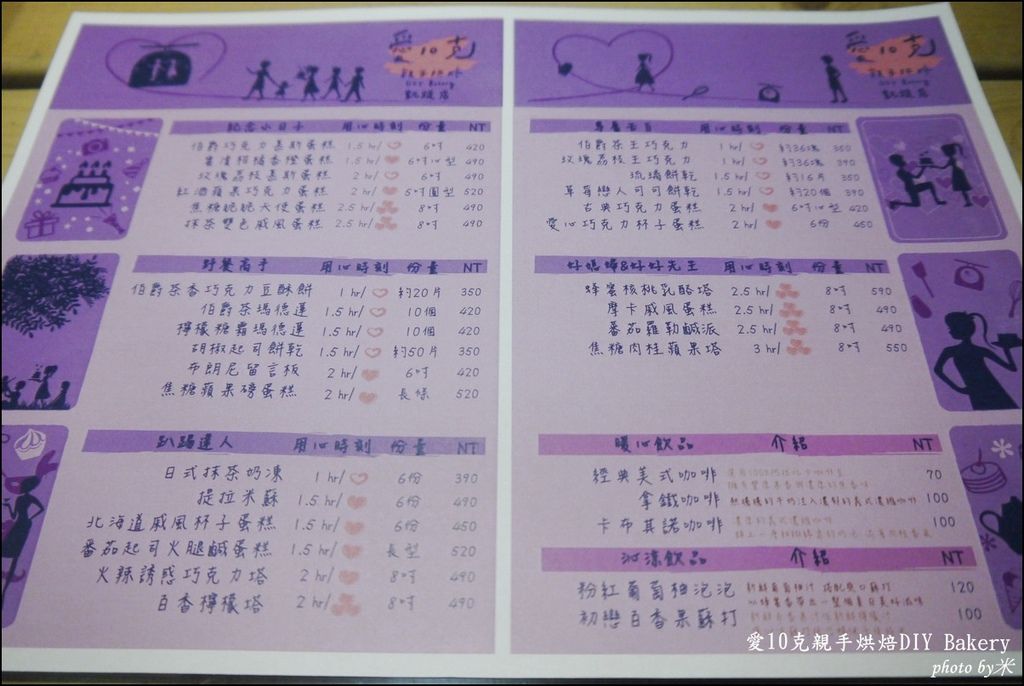 愛10克
親手烘焙
DIY Bakery
凱旋店
紀念小日子 用心時刻 份量 NT
伯爵巧克力慕斯蛋糕 1.5 hr/ 6吋 420
1.5 hr/ 6吋心型 490
玫瑰荔枝慕斯蛋糕 2 hr/ 6吋 490
紅酒蘋果巧克力蛋糕 2 hr/ 5吋圓型 520
焦糖桃桃天使蛋糕 2.5 hr/ 8吋 490
抹茶雙色戚風蛋糕 2.5 hr/ 8吋 490
野餐高手 用心時刻 份量 NT
伯爵茶香巧克力豆酥餅 1 hr/ 約20片 350
伯爵茶瑪德蓮 1.5 hr/ 10個 420
檸檬糖霜瑪德蓮 1.5 hr/ 10個 420
胡椒起司餅乾 1.5 hr/ 約50片 350
布朗尼留言板 2 hr/ 6吋 420
焦糖蘋果磅蛋糕 2 hr/ 長條 520
趴踢達人 用心時刻 份量 NT
日式抹茶奶凍 1 hr/ 6份 390
提拉米蘇 1.5 hr/ 6份 490
北海道戚風杯子蛋糕 1.5 hr/ 6份 450
番茄起司火腿鹹蛋糕 1.5 hr/ 長型 520
火辣誘惑巧克力塔 2 hr/ 8吋 490
百香檸檬塔 2 hr/ 8吋 490
愛10克
親手烘焙
DIY Bakery
凱旋店
用心時刻 份量 NT
伯爵茶王巧克力 1 hr/ 約36塊 350
玫瑰荔枝王巧克力 1 hr/ 約36塊 390
琉璃餅乾 1.5 hr/ 約16片 350
草莓戀人可可餅乾 1.5 hr/ 約20個 390
古典巧克力蛋糕 2 hr/ 6吋心型 420
愛心巧克力杯子蛋糕 2 hr/ 6份 450
好媳婦&好好先生 用心時刻 份量 NT
蜂蜜核桃乳酪塔 2.5 hr/ 8吋 590
摩卡戚風蛋糕 2.5 hr/ 8吋 490
番茄羅勒鹹派 2.5 hr/ 8吋 490
焦糖肉桂蘋果塔 3 hr/ 8吋 550
暖心飲品 介紹 NT
經典美式咖啡 70
拿鐵咖啡 100
卡布其諾咖啡 100
沁涼飲品 介紹 NT
粉紅葡萄柚泡泡 120
初戀百香果蘇打 100
愛10克親手烘焙DIY Bakery
photo by米